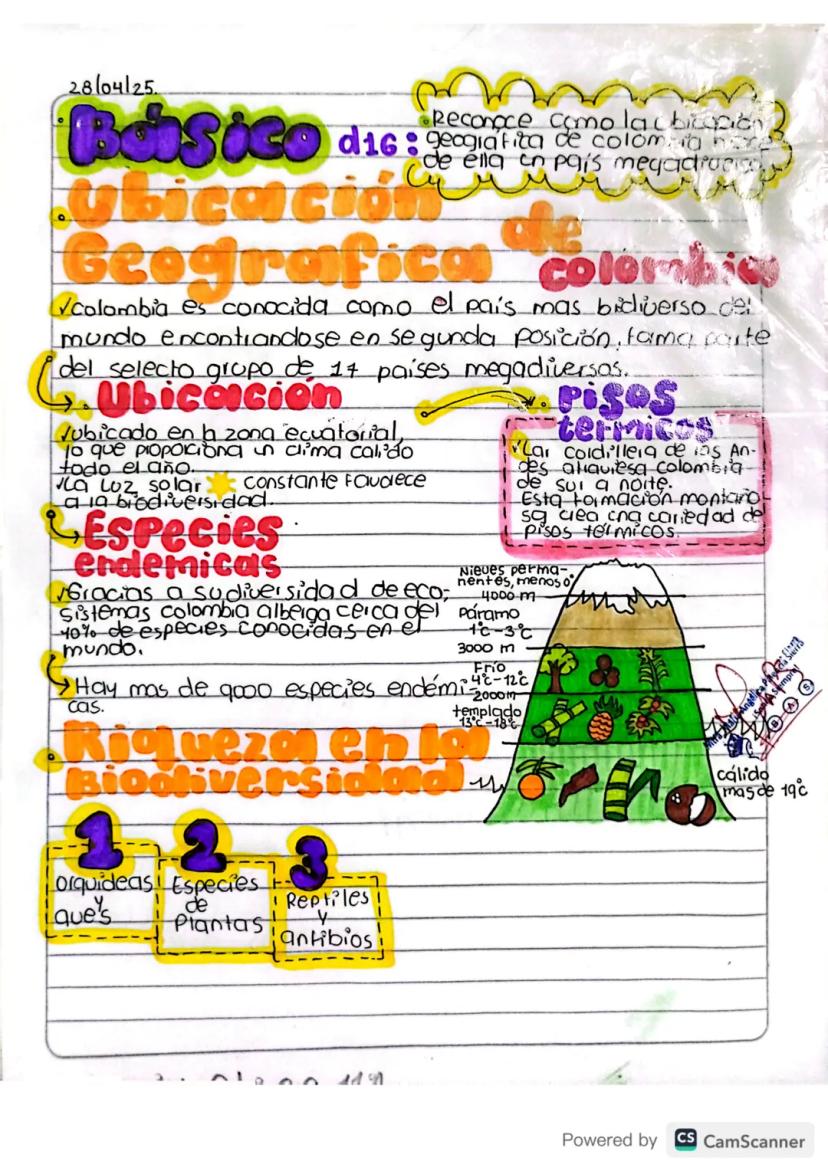 28/04/25.
Básico d16:
•Reconoce como la ubicación
geografica de colombia hace
de ella un país megadiverso
•Ubicación
Geografica de
colombia
✓colombia es conocida como el país mas bidiverso del
mundo encontrandose en segunda posición, forma parte
del selecto grupo de 17 países megadiversos.
•Ubicación
✓ubicado en la zona ecuatorial,
lo que proporciona un clima calido
todo el año.
✓La luz solar constante favorece
a la biodiversidad.
Especies
endemicas
✓Gracias a su diversidad de eco-
sistemas colombia alberga cerca del
10% de especies conocidas en el
mundo.
Hay mas de 9000 especies endémi-
cas.
•pisos
termicos
✓Lar cordillera de los An-
des atraviesa colombia
de sur a norte.
Esta formación montaño
sa crea una variedad de
pisos térmicos.
Nieves perma-
nentes, menos 0°
4000 m
Páramo
1°c-3°c
3000 m
Frío
4°c-12°c
2000m
templado
13°c-18°c
cálido
mas de 19°c
•Riqueza en la
Biodiversidad
1
orquideas
y
aves
2
Especies
de
Plantas
3
Reptiles
y
anfibios
B A S
Powered by CS CamScanner